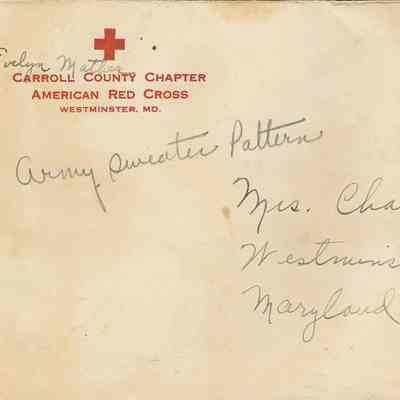 Evelyn Mather
CARROLL COUNTY CHAPTER
AMERICAN RED CROSS
WESTMINSTER, MD.
Army Sweater Pattern
Mrs. Cha
Westmins
Maryland